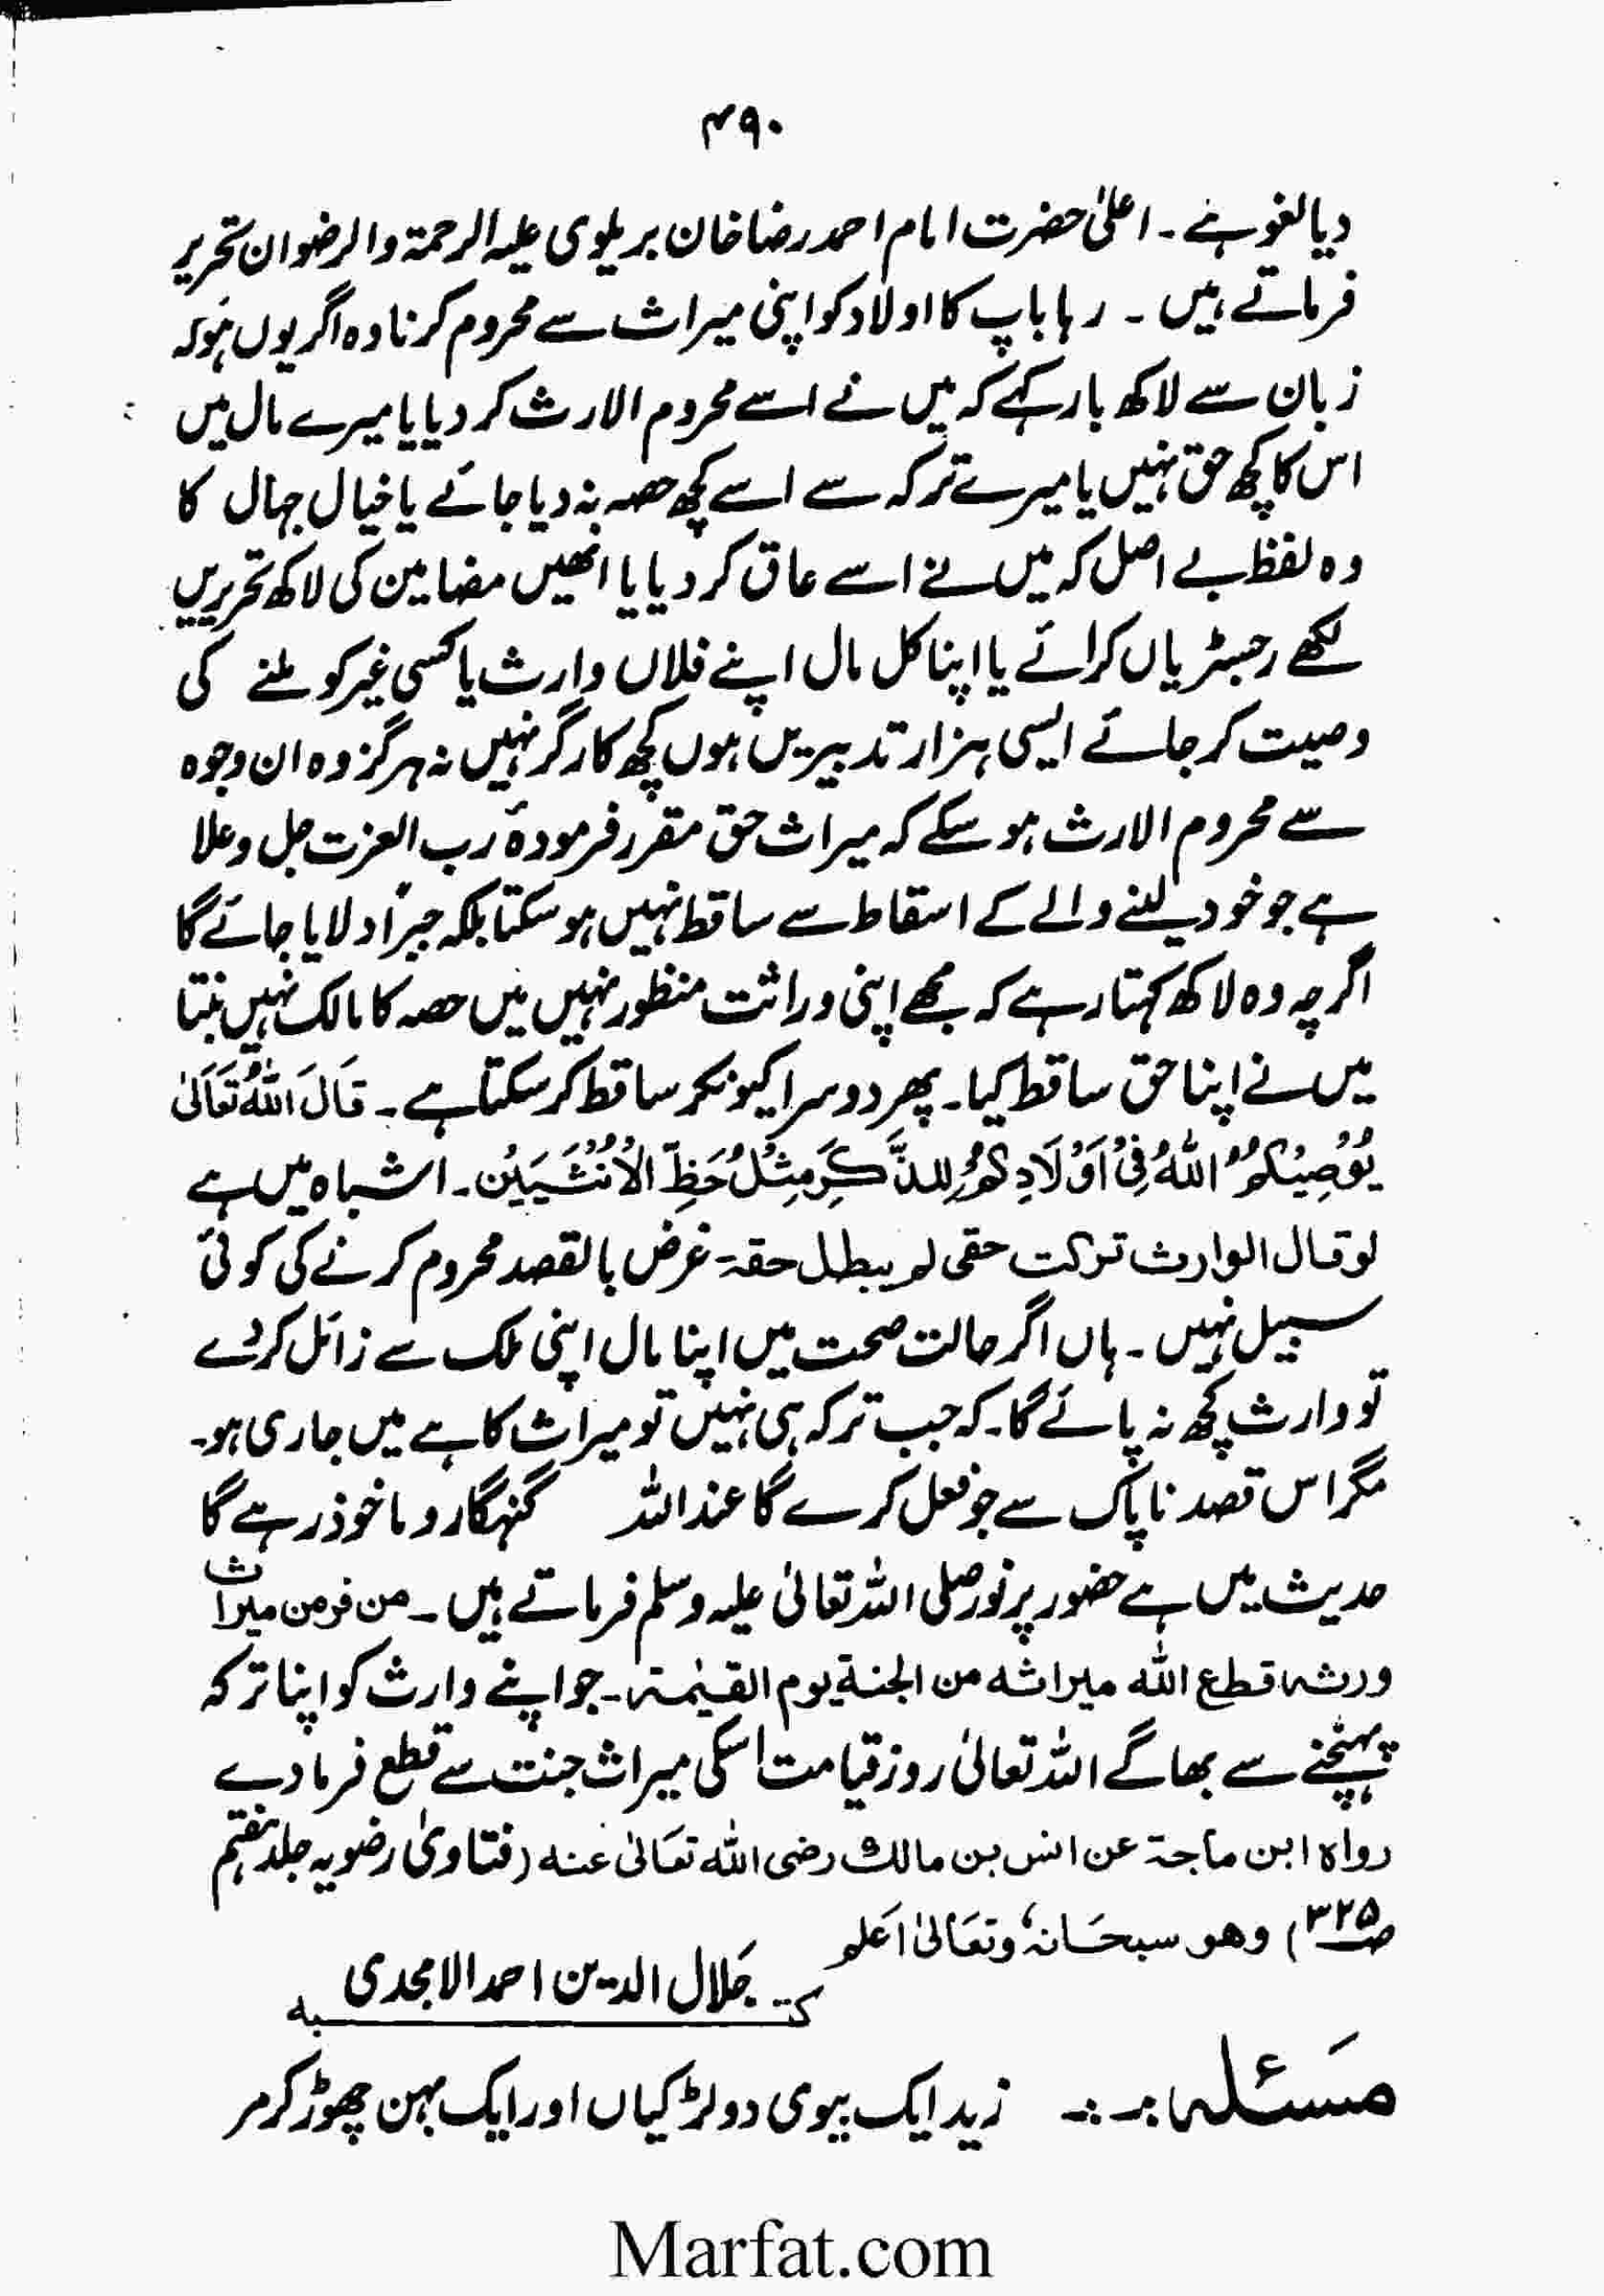 ۴۹۰
دیا لغو ہے۔ اعلیٰ حضرت امام احمد رضا خان بریلوی علیہ الرحمۃ والرضوان تحریر
فرماتے ہیں ۔ رہا باپ کا اولاد کو اپنی میراث سے محروم کرنا وہ اگر یوں ہو کہ
زبان سے لاکھ بار کہے کہ میں نے اسے محروم الارث کر دیا یا میرے مال میں
اس کا کچھ حق نہیں یا میرے ترکہ سے اسے کچھ حصہ نہ دیا جائے یا خیال جہال کا
وہ لفظ بے اصل کہ میں نے اسے عاق کر دیا یا انھیں مضامین کی لاکھ تحریریں
لکھے رجسٹریاں کرائے یا اپنا کل مال اپنے فلاں وارث یا کسی غیر کو ملنے کی
وصیت کر جائے ایسی ہزار تدبیریں ہوں کچھ کارگر نہیں نہ ہرگز وہ ان وجوہ
سے محروم الارث ہو سکے کہ میراث حق مقرر فرمودۂ رب العزت جل وعلا
ہے جو خود لینے والے کے اسقاط سے ساقط نہیں ہو سکتا بلکہ جبراً دلایا جائے گا
اگرچہ وہ لاکھ کہتا رہے کہ مجھے اپنی وراثت منظور نہیں میں حصہ کا مالک نہیں بنتا
میں نے اپنا حق ساقط کیا۔ پھر دوسرا کیونکر ساقط کر سکتا ہے۔ قَالَ اللّٰهُ تَعَالَىٰ
يُوْصِيْكُمُ اللّٰهُ فِيْ اَوْلَادِكُمْ لِلذَّكَرِ مِثْلُ حَظِّ الْاُنْثَيَيْنِ۔ اشباہ میں ہے
لو قال الوارث تركت حقى لم يبطل حقه۔ غرض بالقصد محروم کرنے کی کوئی
سبیل نہیں ۔ ہاں اگر حالت صحت میں اپنا مال اپنی ملک سے زائل کر دے
تو وارث کچھ نہ پائے گا۔ کہ جب ترکہ ہی نہیں تو میراث کاہے میں جاری ہو۔
مگر اس قصد ناپاک سے جو فعل کرے گا عند اللہ گنہگار و ماخوذ رہے گا
حدیث میں ہے حضور پرنور صلی اللہ تعالیٰ علیہ وسلم فرماتے ہیں ۔ من فر من ميراث
ورثه قطع الله ميراثه من الجنة يوم القيٰمة۔ جو اپنے وارث کو اپنا ترکہ
پہنچنے سے بھاگے اللہ تعالیٰ روز قیامت اسکی میراث جنت سے قطع فرما دے
رواه ابن ماجة عن انس بن مالك رضى الله تعالىٰ عنه (فتاویٰ رضویہ جلد ہفتم
ص۳۲۵) وهو سبحانهٗ وتعالىٰ اعلم
کتبہ جلال الدین احمد الامجدی
مسئلہ :۔ زید ایک بیوی دو لڑکیاں اور ایک بہن چھوڑ کر مر
Marfat.com